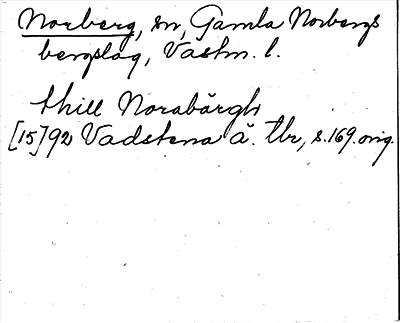 Norberg, sn, Gamla Norbergs
bergslag, Västm. l.
thill Norabärgh
[15]92 Vadstena ä. Tbr, s.169.orig.